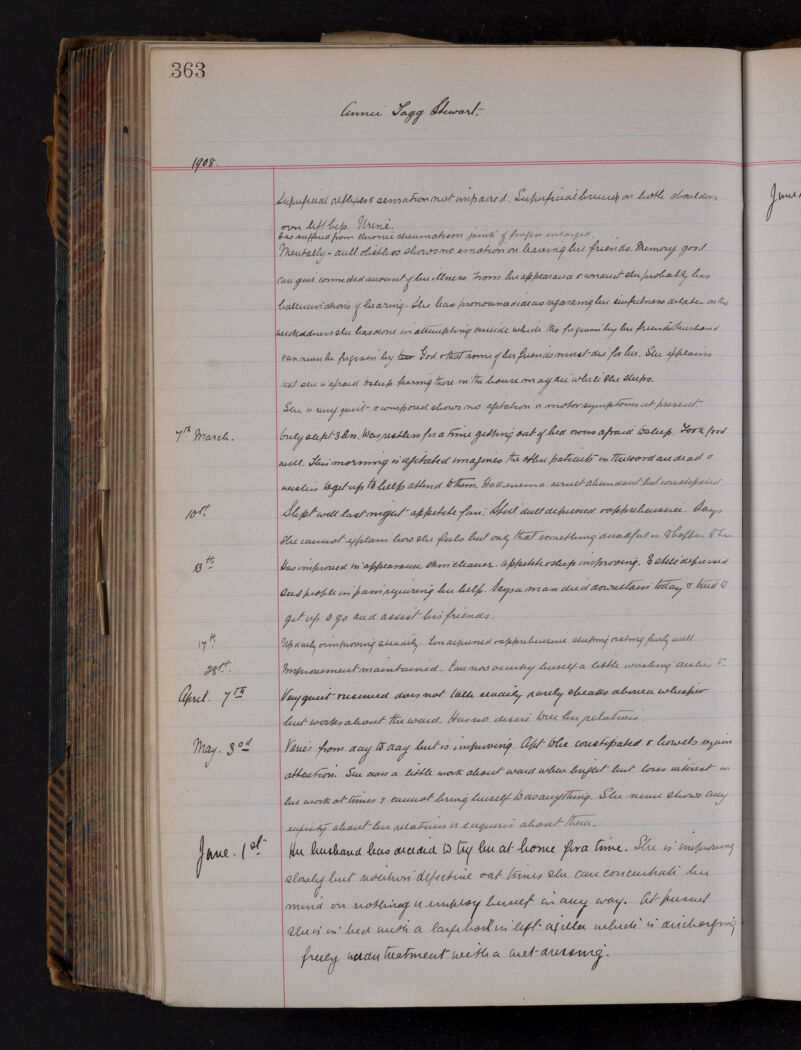 363
Annie Tagg Stewart.
1908.
Superficial reflexes & sensation not impaired. Superficial bruises on both shoulders
over left hip. Urine.
has suffered from chronic rheumatism joints of fingers enlarged.
Mentally - dull & listless shows no emotion on leaving her friends. Memory good
can give connected account of her illness. From her appearance & conduct she probably has
hallucinations of hearing. She has pronounced ideas regarding her sinfulness & on the
wickedness she has done in attempting suicide which tho forgiven by her friends & husband
can never be forgiven by God & that some of her friends must die for her. She explains
that she is afraid to sleep fearing those in the house may die while she sleeps.
She is very quiet & composed shows no agitation or motor symptoms at present.
7th March.
Only slept 3 hrs. Was restless for a time getting out of bed & was afraid to sleep. Took food
well. This morning is agitated imagines the other patients in the ward are dead &
wishes to get up to help attend to them. Had enema result abundant but constipated
10th
Slept well last night appetite fair. Still dull depressed & apprehensive. Says
she cannot explain how she feels but only that something dreadful is to happen to her
13th
Has improved in appearance skin cleaner. appetite & sleep improving. Is still depressed
sees people in pain requiring her help. Says a man died downstairs today & tried to
get up & go and assist his friends.
17th
Up daily & improving steadily. Less depressed & apprehensive sleeping & eating fairly well.
28th.
Improvement maintained. Can now occupy herself a little washing dishes &c
April. 7th
Very quiet & reserved does not talk readily rarely speaks above a whisper
but works about the ward. Has no desire to see her relatives.
May. 3rd
Varies from day to day but is improving. Apt to be constipated & bowels require
attention. She does a little work about ward when bright but loses interest in
her work at times & cannot bring herself to do anything. She never shows any
about her relatives or enquires about them.
June. 1st
Her husband has decided to try her at home for a time. She is improving
slowly but volition defective & at times she can concentrate her
mind on nothing or employ herself in any way. At present
she is in bed with a large boil in left axilla which is discharging
freely under treatment with a wet dressing.
June